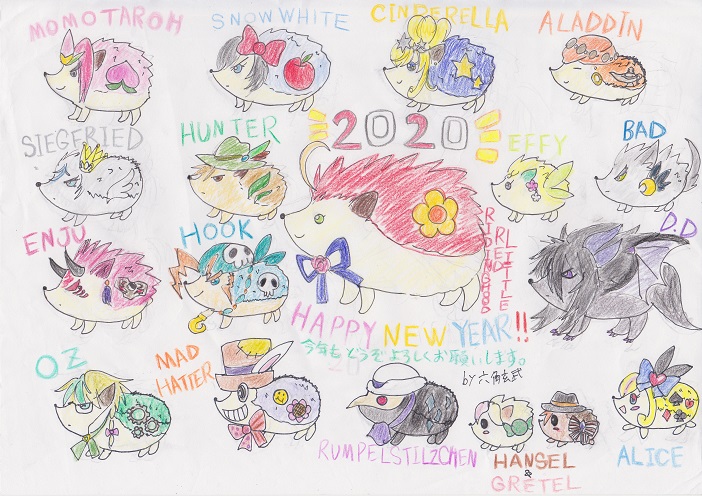 MOMOTAROH
SNOW WHITE
CINDERELLA
ALADDIN
SIEGFRIED
HUNTER
2020
EFFY
BAD
ENJU
HOOK
LITTLE
RED
RIDINGHOOD
D.D
HAPPY NEW YEAR!!
今年もどうぞよろしくお願いします。
by 六角玄武
OZ
MAD
HATTER
RUMPELSTILZCHEN
HANSEL
&
GRETEL
ALICE